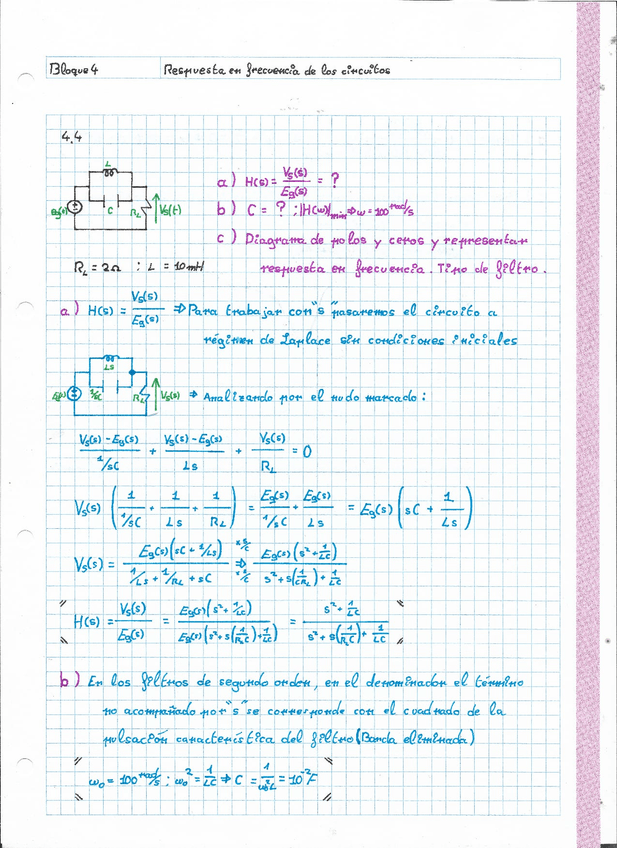 Bloque 4 Respuesta en frecuencia de los circuitos
4.4
L
eg(t) C RL Vs(t)
RL = 2Ω ; L = 10mH
a) H(s) = Vs(s)/Eg(s) = ?
b) C = ? ; |H(ω)|min ⇒ ω = 100 rad/s
c) Diagrama de polos y ceros y representar
respuesta en frecuencia. Tipo de filtro.
a) H(s) = Vs(s)/Eg(s) ⇒ Para trabajar con "s" pasaremos el circuito a
régimen de Laplace sin condiciones iniciales
Ls
Eg(s) 1/sC RL Vs(s) ⇒ Analizando por el nudo marcado:
(Vs(s) - Eg(s))/(1/sC) + (Vs(s) - Eg(s))/(Ls) + Vs(s)/RL = 0
Vs(s) (1/(1/sC) + 1/Ls + 1/RL) = Eg(s)/(1/sC) + Eg(s)/Ls = Eg(s) (sC + 1/Ls)
Vs(s) = Eg(s)(sC + 1/Ls)/(1/Ls + 1/RL + sC) x s/C ⇒ x s/C Eg(s)(s² + 1/LC)/(s² + s(1/CRL) + 1/LC)
" H(s) = Vs(s)/Eg(s) = Eg(s)(s² + 1/LC)/(Eg(s)(s² + s(1/RLC) + 1/LC)) = (s² + 1/LC)/(s² + s(1/RLC) + 1/LC) "
b) En los filtros de segundo orden, en el denominador el término
no acompañado por "s" se corresponde con el cuadrado de la
pulsación característica del filtro (Banda eliminada)
" ω₀ = 100 rad/s ; ω₀² = 1/LC ⇒ C = 1/ω₀²L = 10⁻² F "